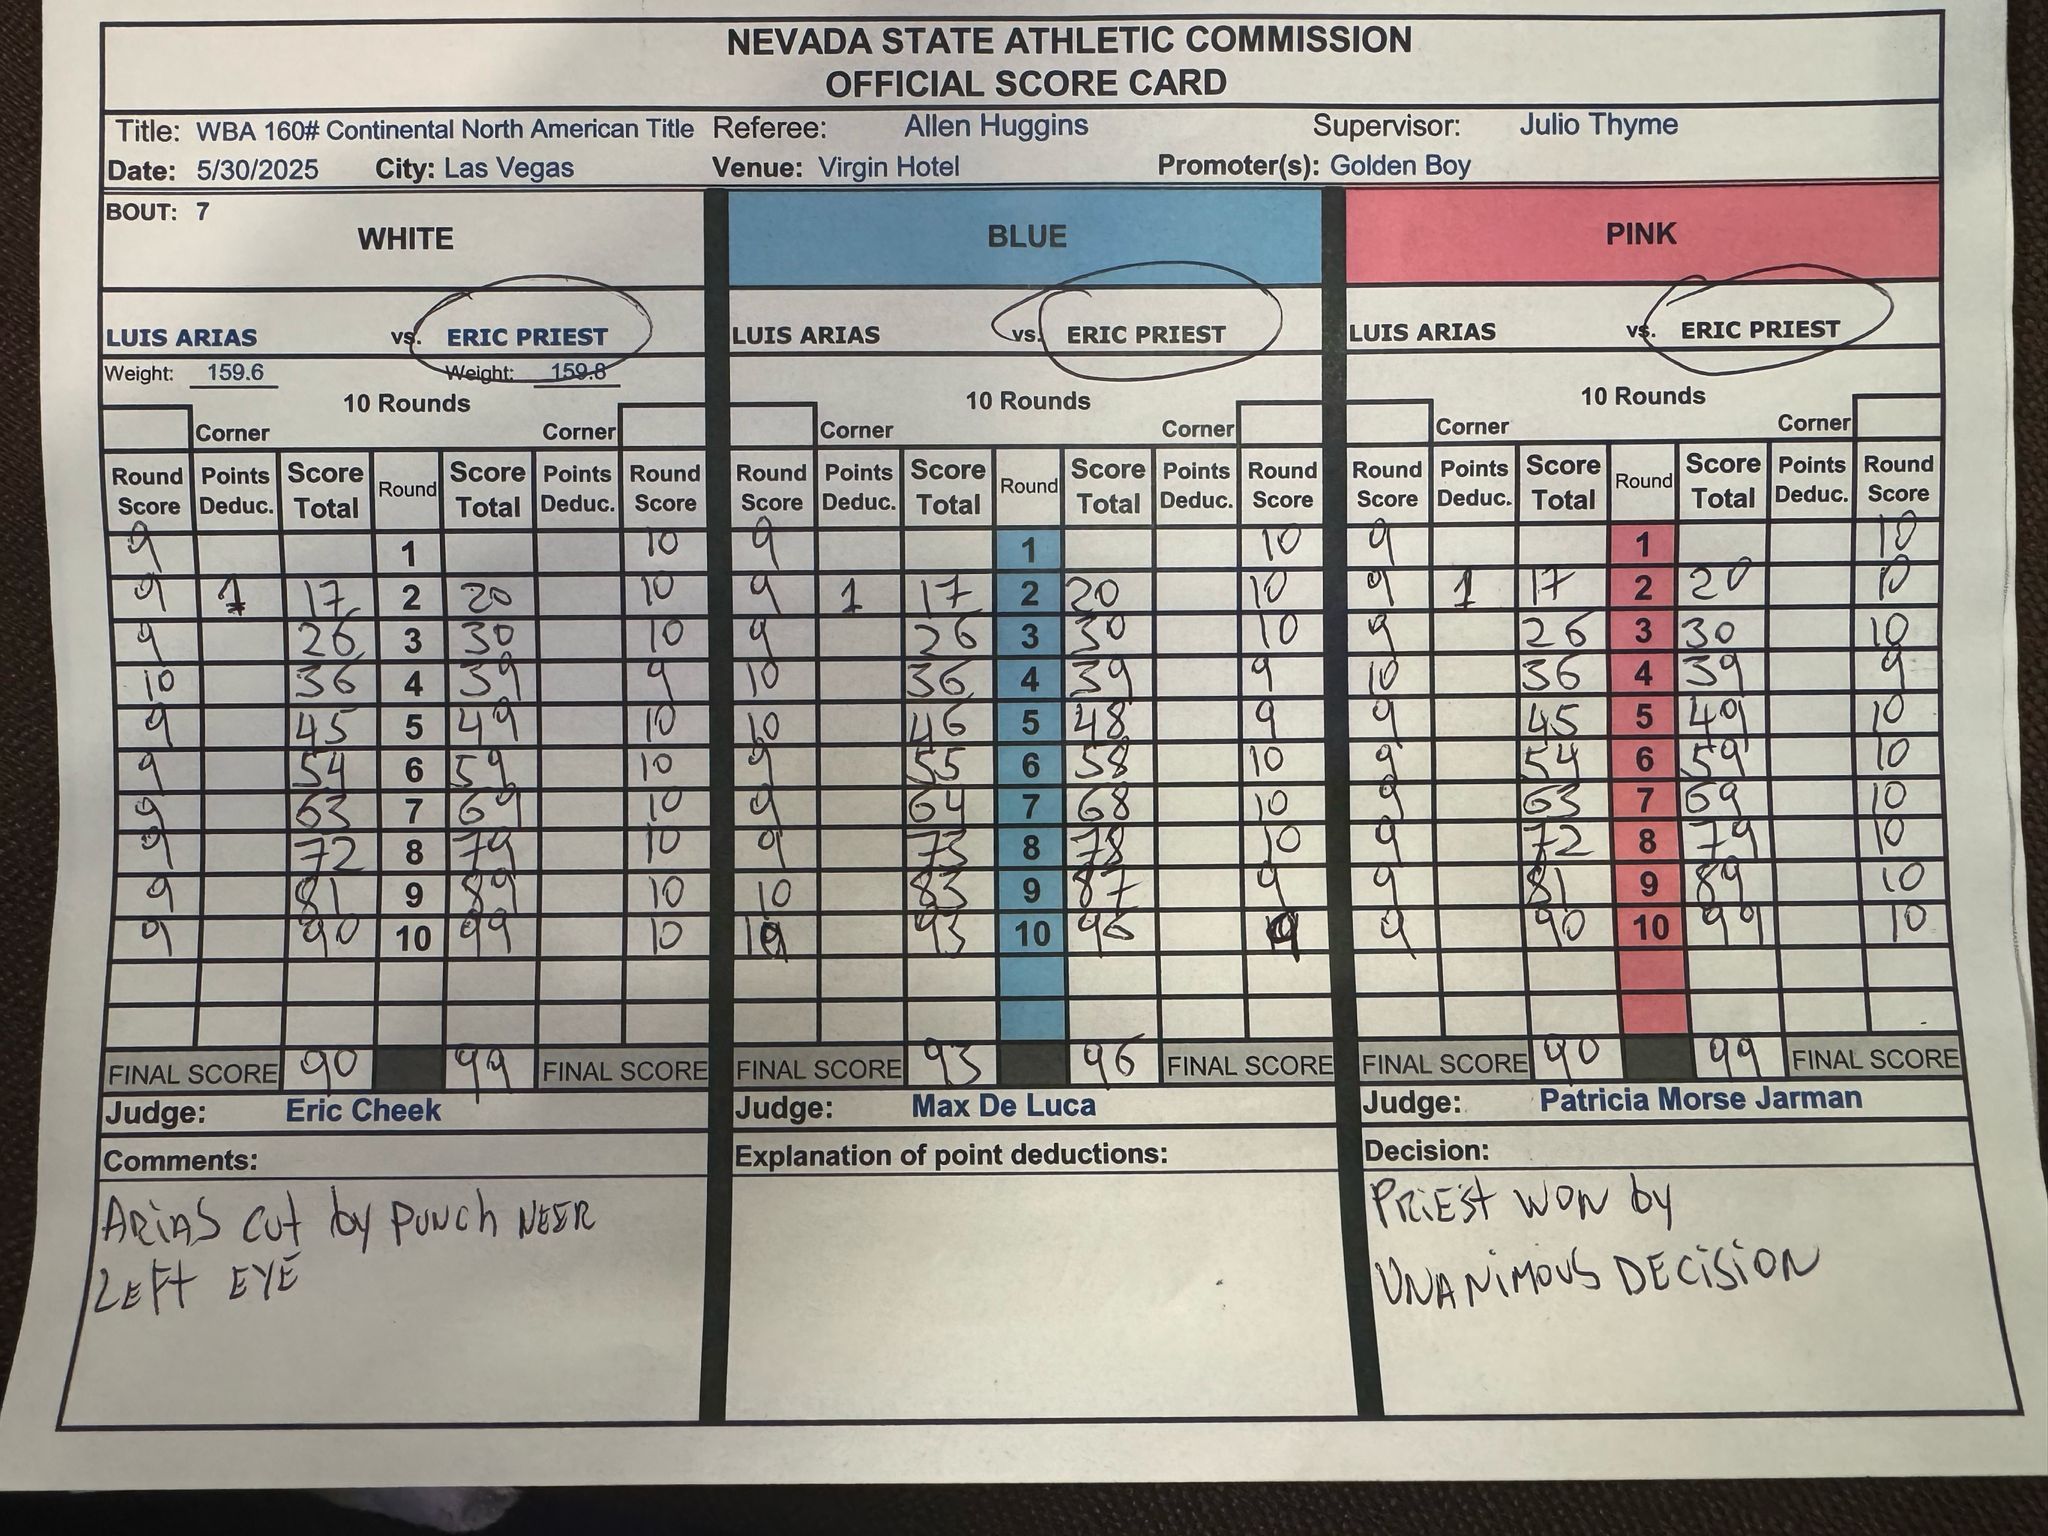 NEVADA STATE ATHLETIC COMMISSION
OFFICIAL SCORE CARD
Title: WBA 160# Continental North American Title Referee: Allen Huggins Supervisor: Julio Thyme
Date: 5/30/2025 City: Las Vegas Venue: Virgin Hotel Promoter(s): Golden Boy
BOUT: 7
WHITE BLUE PINK
LUIS ARIAS vs. ERIC PRIEST LUIS ARIAS vs. ERIC PRIEST LUIS ARIAS vs. ERIC PRIEST
Weight: 159.6 Weight: 159.8
10 Rounds 10 Rounds 10 Rounds
Corner Corner Corner Corner Corner Corner
Round Points Score Round Score Points Round Round Points Score Round Score Points Round Round Points Score Round Score Points Round
Score Deduc. Total Total Deduc. Score Score Deduc. Total Total Deduc. Score Score Deduc. Total Total Deduc. Score
9 1 10 9 1 10 9 1 10
9 1 17 2 20 10 9 1 17 2 20 10 9 1 17 2 20 10
9 26 3 30 10 9 26 3 30 10 9 26 3 30 10
10 36 4 39 9 10 36 4 39 9 10 36 4 39 9
9 45 5 49 10 10 46 5 48 9 9 45 5 49 10
9 54 6 59 10 9 55 6 58 10 9 54 6 59 10
9 63 7 69 10 9 64 7 68 10 9 63 7 69 10
9 72 8 79 10 9 73 8 78 10 9 72 8 79 10
9 81 9 89 10 10 83 9 87 9 9 81 9 89 10
9 90 10 99 10 10 93 10 96 9 9 90 10 99 10
FINAL SCORE 90 99 FINAL SCORE FINAL SCORE 93 96 FINAL SCORE FINAL SCORE 90 99 FINAL SCORE
Judge: Eric Cheek Judge: Max De Luca Judge: Patricia Morse Jarman
Comments: Explanation of point deductions: Decision:
ARIAS cut by PUNCH NEER
LEFt EYE
PRiESt WON by
UNANiMOUS DECiSiON